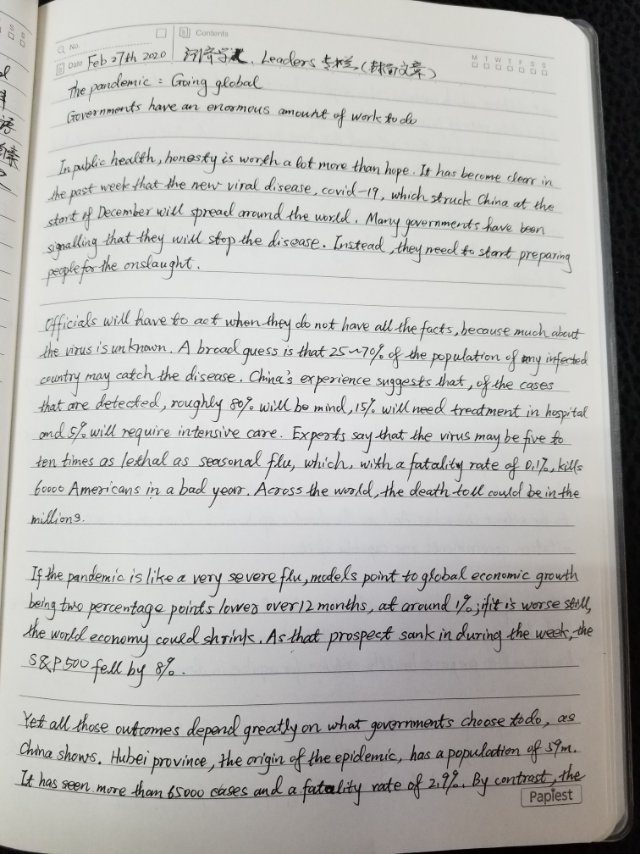 No.
Contents
Date Feb 27th 2020 Leaders 专栏(封面文章)
M T W T F S S
The pandemic : Going global
Governments have an enormous amount of work to do
In public health, honesty is worth a lot more than hope. It has become clear in
the past week that the new viral disease, covid-19, which struck China at the
start of December will spread around the world. Many governments have been
signalling that they will stop the disease. Instead, they need to start preparing
people for the onslaught.
Officials will have to act when they do not have all the facts, because much about
the virus is unknown. A broad guess is that 25~70% of the population of any infected
country may catch the disease. China's experience suggests that, of the cases
that are detected, roughly 80% will be mind, 15% will need treatment in hospital
and 5% will require intensive care. Experts say that the virus may be five to
ten times as lethal as seasonal flu, which, with a fatality rate of 0.1%, kills
60000 Americans in a bad year. Across the world, the death toll could be in the
millions.
If the pandemic is like a very severe flu, models point to global economic growth
being two percentage points lower over 12 months, at around 1%; if it is worse still,
the world economy could shrink. As that prospect sank in during the week, the
S&P 500 fell by 8%.
Yet all those outcomes depend greatly on what governments choose to do, as
China shows. Hubei province, the origin of the epidemic, has a population of 59m.
It has seen more than 65000 cases and a fatality rate of 2.9%. By contrast, the
Papiest